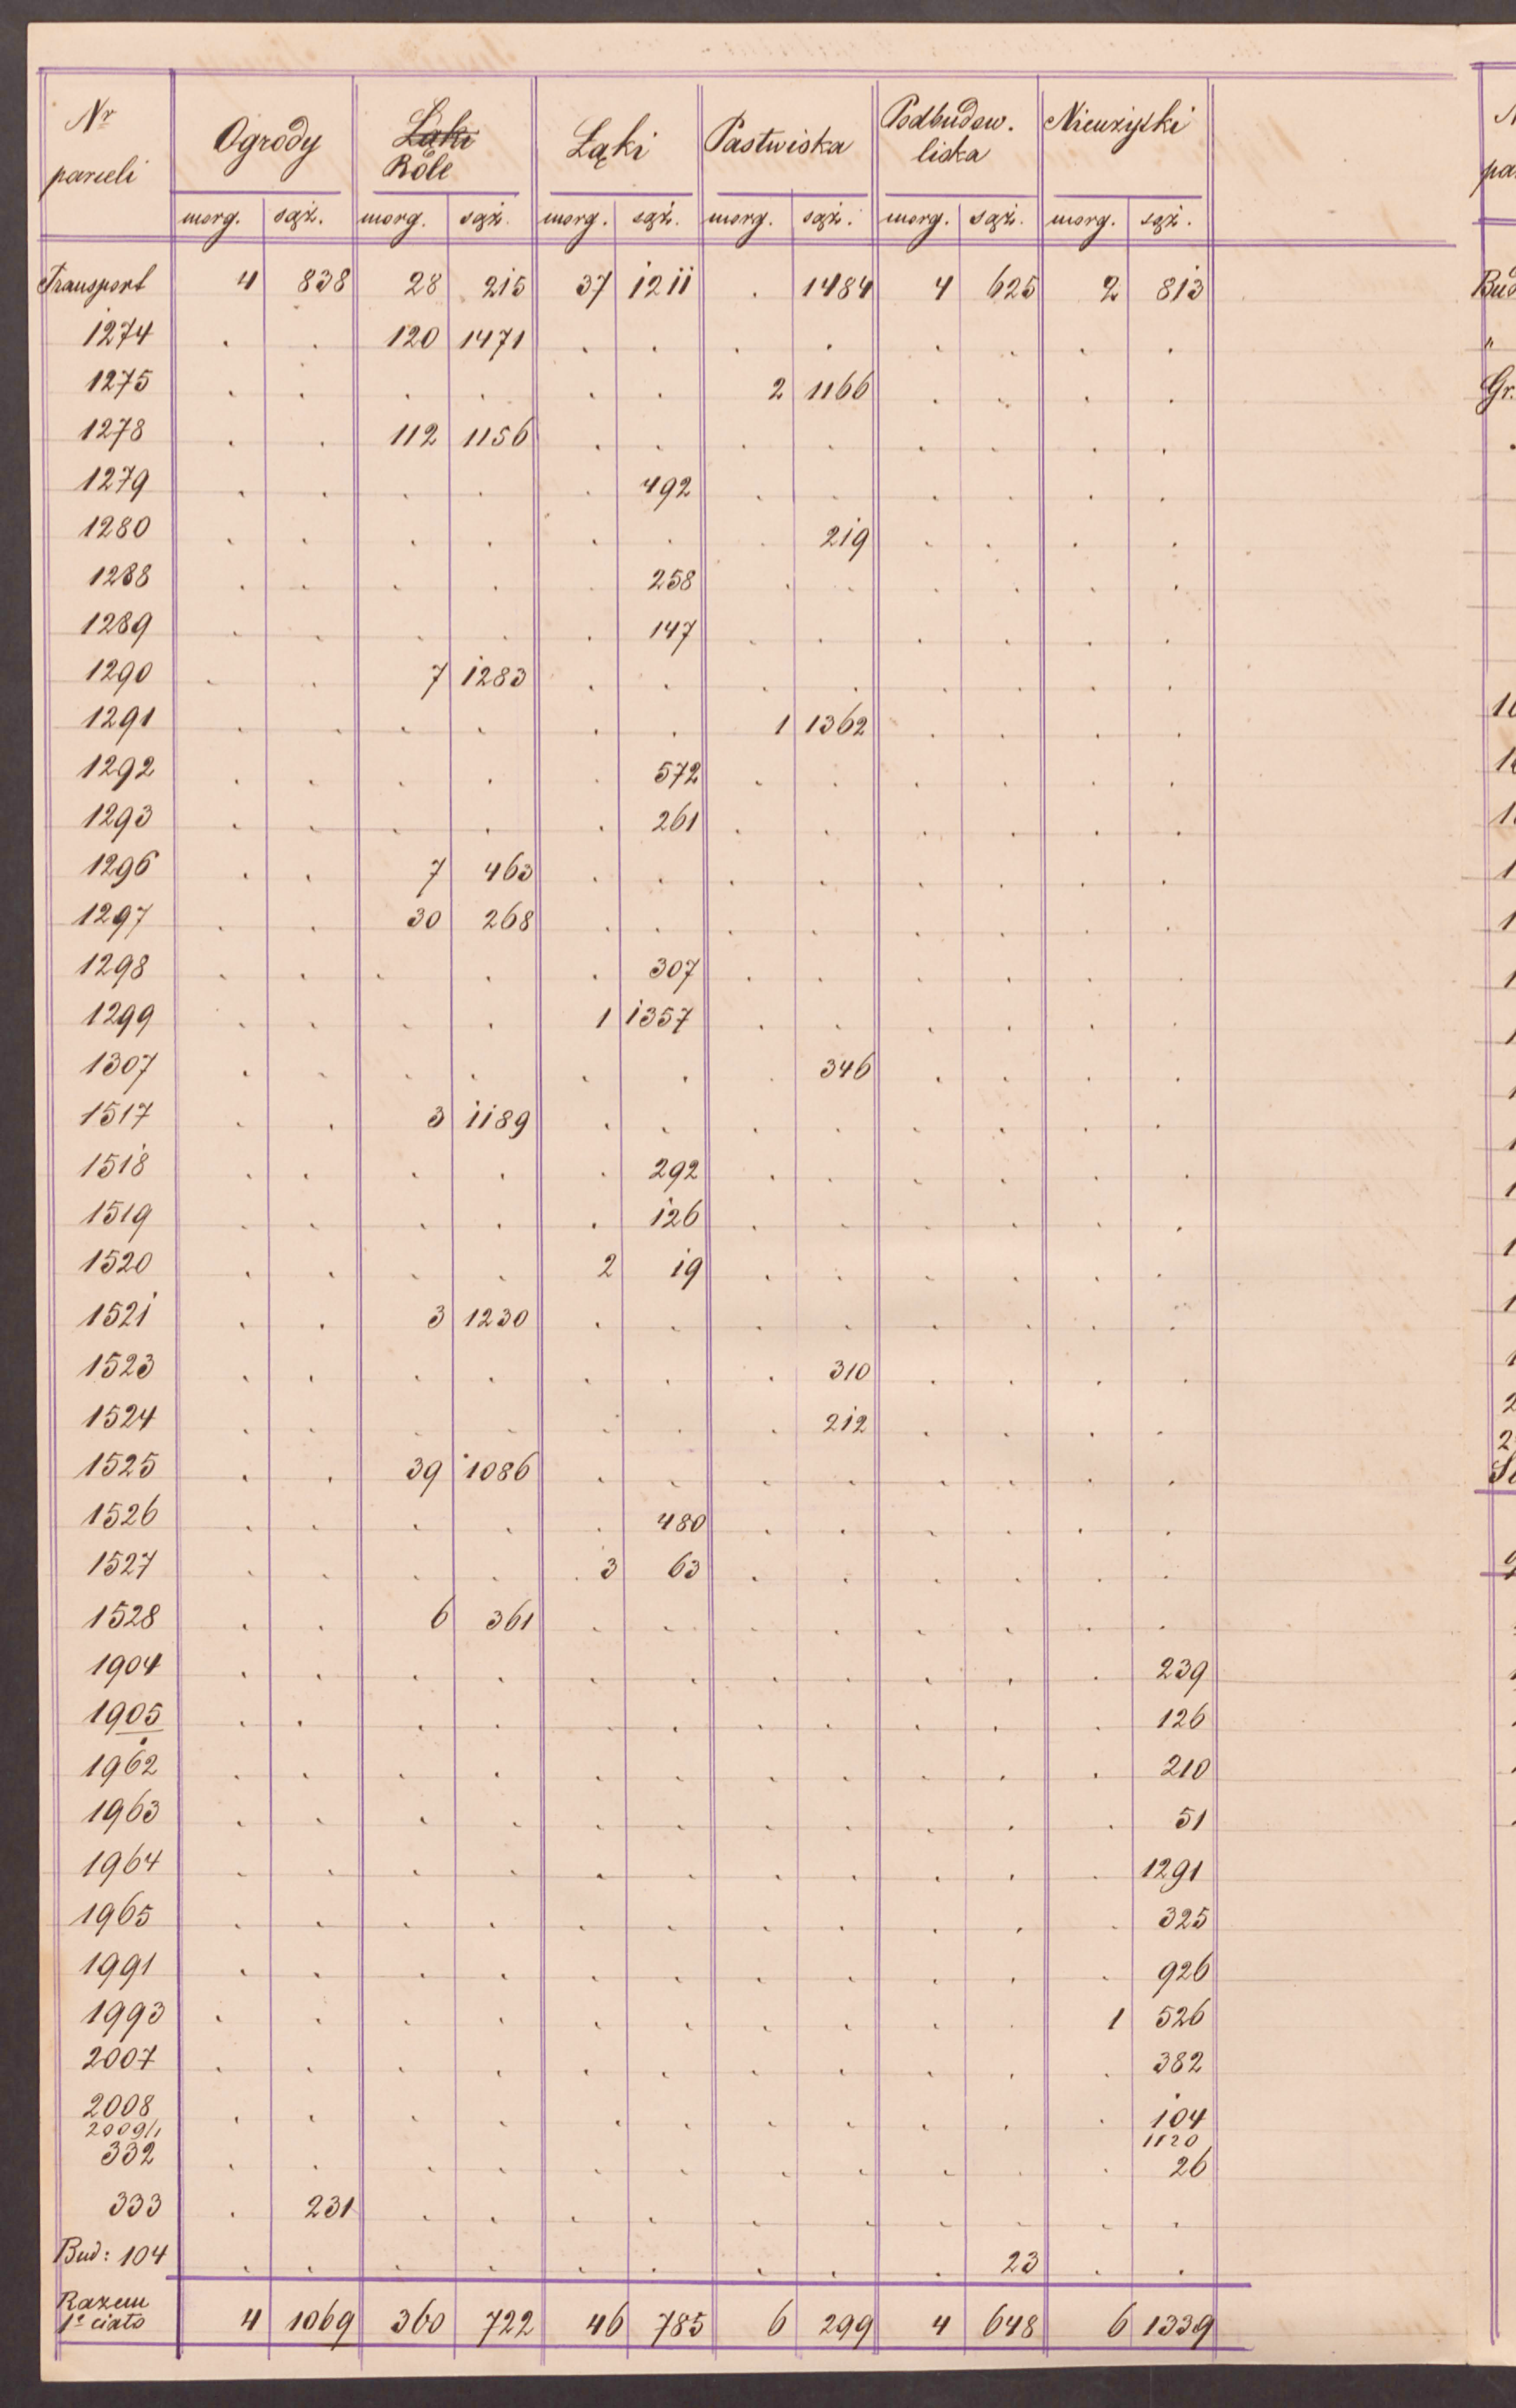 Nr parceli Ogrody Łąki Role Łąki Pastwiska Podbudow. liska Nieużytki
morg. sąż. morg. sąż. morg. sąż. morg. sąż. morg. sąż. morg. sąż.
Transport 4 838 28 215 37 1211 . 1484 4 625 2 813
1274 . . 120 1471 . . . . . . . .
1275 . . . . . . 2 1166 . . . .
1278 . . 112 1156 . . . . . . . .
1279 . . . . . 492 . . . . . .
1280 . . . . . . . 219 . . . .
1288 . . . . . 258 . . . . . .
1289 . . . . . 147 . . . . . .
1290 . . 7 1283 . . . . . . . .
1291 . . . . . . 1 1362 . . . .
1292 . . . . . 572 . . . . . .
1293 . . . . . 261 . . . . . .
1296 . . 7 463 . . . . . . . .
1297 . . 30 268 . . . . . . . .
1298 . . . . . 307 . . . . . .
1299 . . . . 1 1357 . . . . . .
1307 . . . . . . . 346 . . . .
1517 . . 3 1189 . . . . . . . .
1518 . . . . . 292 . . . . . .
1519 . . . . . 126 . . . . . .
1520 . . . . 2 19 . . . . . .
1521 . . 3 1230 . . . . . . . .
1523 . . . . . . . 310 . . . .
1524 . . . . . . . 212 . . . .
1525 . . 39 1086 . . . . . . . .
1526 . . . . . 480 . . . . . .
1527 . . . . 3 63 . . . . . .
1528 . . 6 361 . . . . . . . .
1904 . . . . . . . . . . . 239
1905 . . . . . . . . . . . 126
1962 . . . . . . . . . . . 210
1963 . . . . . . . . . . . 51
1964 . . . . . . . . . . . 1291
1965 . . . . . . . . . . . 325
1991 . . . . . . . . . . . 926
1993 . . . . . . . . . . 1 526
2007 . . . . . . . . . . . 382
2008 . . . . . . . . . . . 104
2009/1 1120
332 . . . . . . . . . . . 26
333 . 231 . . . . . . . . . .
Bud: 104 . . . . . . . . . 23 . .
Razem 1e ciało 4 1069 360 722 46 785 6 299 4 648 6 1339